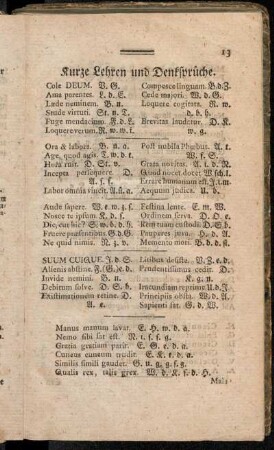 13
Kurze Lehren und Denksprüche.
Cole DEUM. V. G.
Ama parentes. L. d. E.
Læde neminem. B. n.
Stude virtuti. St. n. T.
Fuge mendacium. F. d. L.
Loquere verum. R. w. w. f.
Compesce linguam. B. d. Z.
Cede majori. W. d. G.
Loquere cogitata. R. w.
d. h. h.
Brevitas laudatur. D. K.
w. g.
Ora & labora. B. n. a.
Age, quod agis. T. w. d. t.
Hora ruit. D. St. v.
Incepta persequere. D.
A. f. f.
Labor omnia vincit. A. ü. a.
Post nubila Phœbus. A. r.
W. f. S.
Grata novitas. G. i. d. N.
Quod nocet docet. W sch. l.
Errare humanum est. J. i. m.
Aequum judica. U. d.
Aude sapere. W. e. w. z. f.
Nosce te ipsum. K. d. f.
Dic, cur hic? S. w. b. d. h.
Fruere præsentibus. G. d. G.
Ne quid nimis. N. z. v.
Festina lente. E. m. W.
Ordinem serva. D. O. e.
Rem tuam custodi. D. S. b.
Propera juva. H. d. A.
Memento mori. B. d. d. st.
SUUM CUIQUE. J. d. S.
Alienis abstine. F. (G.) e. d.
Invide nemini. B. n.
Debitum solve. D. S. b.
Existimationem retine. D.
A. e.
Litibus desiste. V. Z. e. d.
Pendentissimus cedit. D.
K. g. n.
Iracundiam reprime. J. d. Z.
Principiis obsta. W. d. A.
Sapienti sat. G. d. W.
Manus manum lavat. E. H. w. d. a.
Nemo sibi sat est. N. i. f. f. g.
Gratia gratiam parit. E. G. e. d. a.
Cuneus cuneum trudit. E. K. t. d. a.
Similis simili gaudet. G. u. g. g. f. g.
Qualis rex, talis grex. W. d. K. f. d. H.
Mala